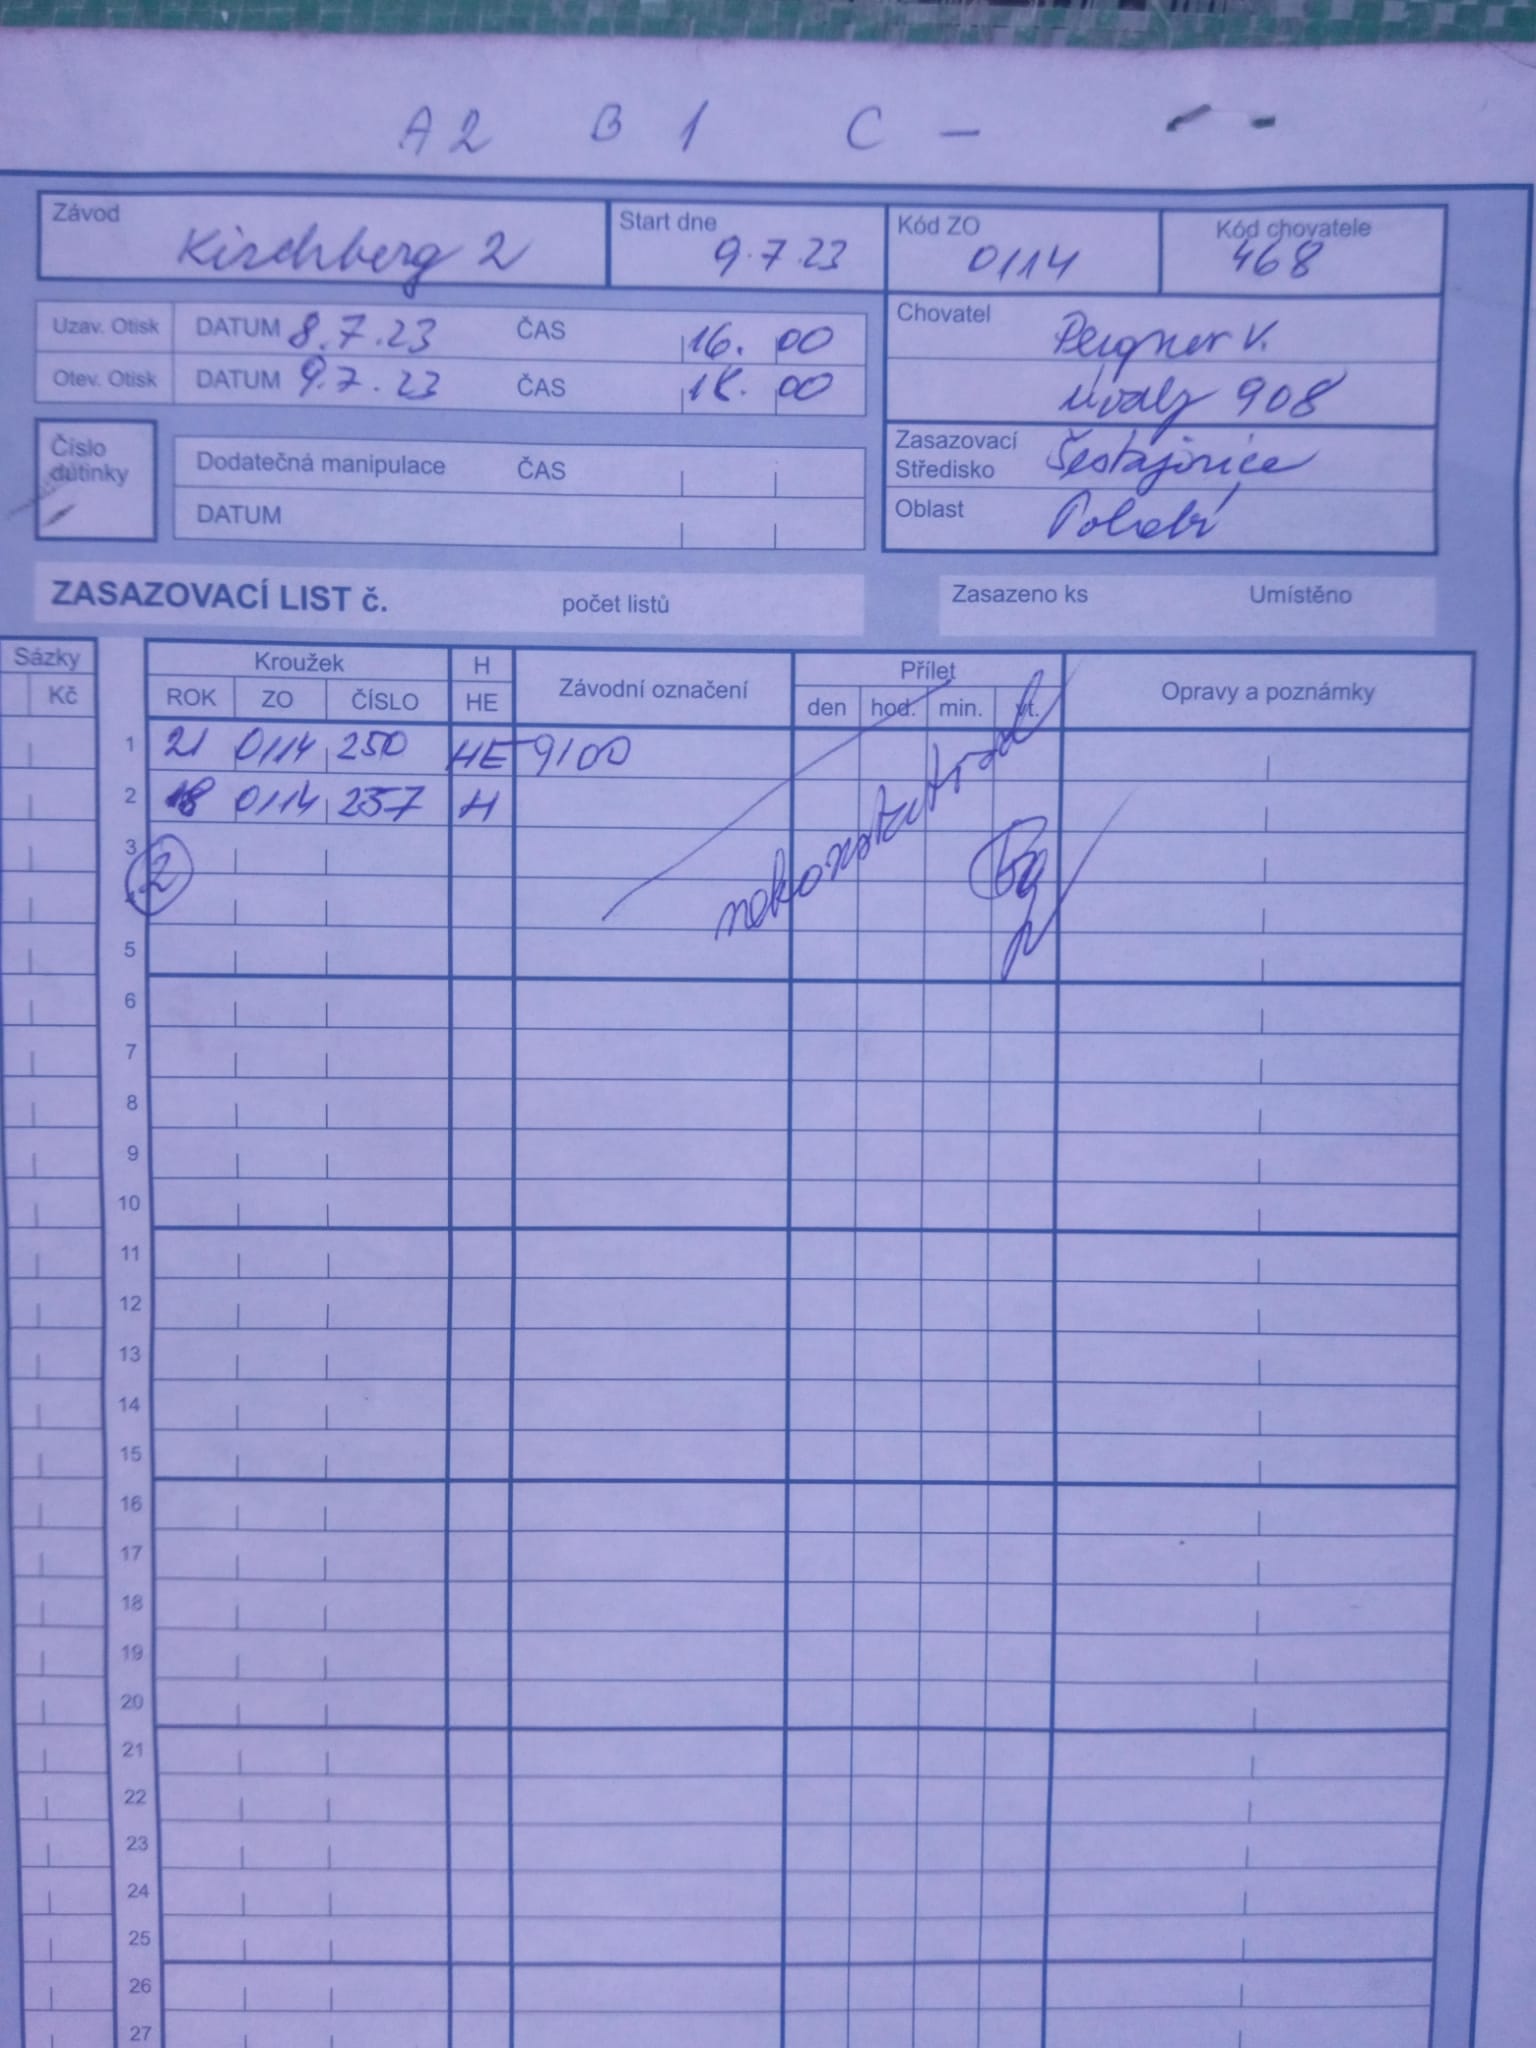 A2 B 1 C -
Závod Kirchberg 2 Start dne 9.7.23 Kód ZO 0114 Kód chovatele 468
Uzav. Otisk DATUM 8.7.23 ČAS 16.00
Otev. Otisk DATUM 9.7.23 ČAS 18.00
Chovatel Pergner V.
Úvaly 908
Číslo dutinky
Dodatečná manipulace ČAS
DATUM
Zasazovací Středisko Šestajovice
Oblast Polabí
ZASAZOVACÍ LIST č. počet listů Zasazeno ks Umístěno
Sázky Kroužek H Závodní označení Přílet Opravy a poznámky
Kč ROK ZO ČÍSLO HE den hod. min. vt.
1 21 0114 250 HE 9100
2 18 0114 257 H
3
2
4
nekonstatoval
5
6
7
8
9
10
11
12
13
14
15
16
17
18
19
20
21
22
23
24
25
26
27